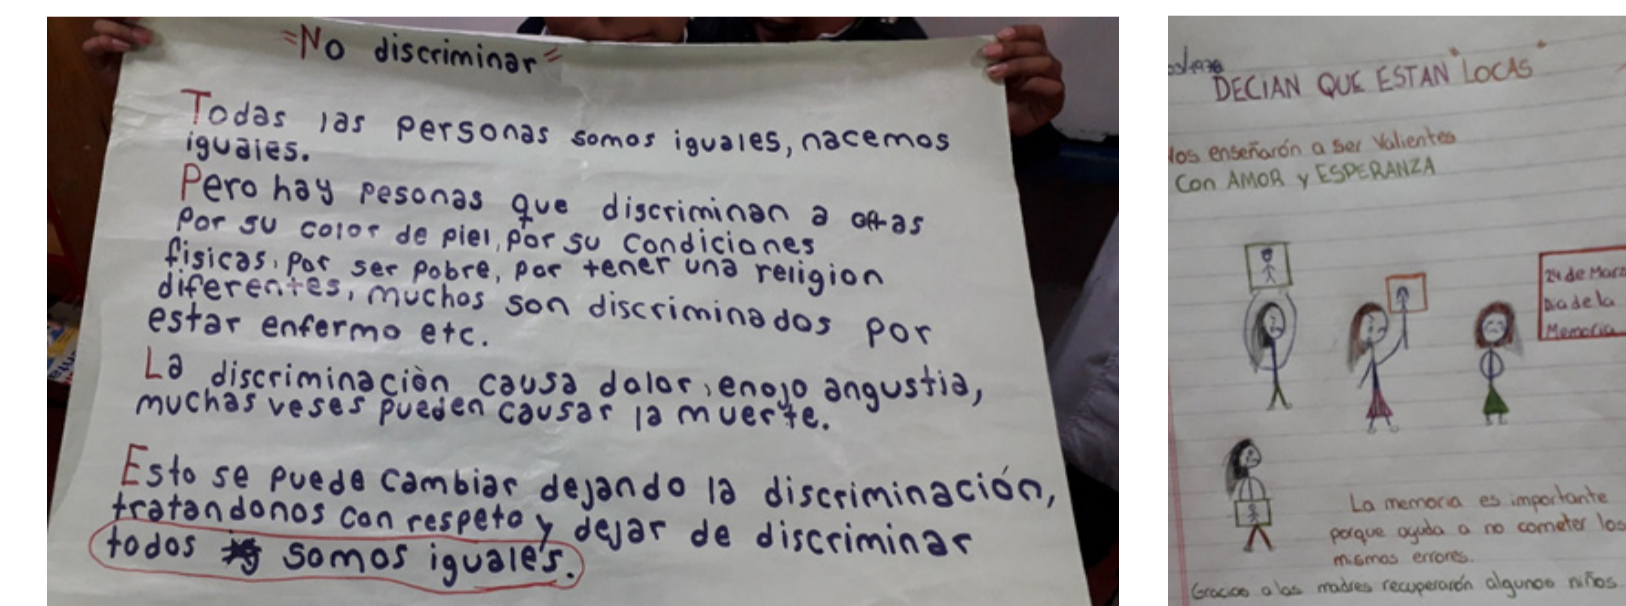 ="No discriminar"=
Todas las personas somos iguales, nacemos
iguales.
Pero hay pesonas que discriminan a otras
por su color de piel, por su condiciones
fisicas, por ser pobre, por tener una religion
diferentes, muchos son discriminados por
estar enfermo etc.
La discriminaciòn causa dolor, enojo angustia,
muchas veses pueden causar la muerte.
Esto se puede cambiar dejando la discriminación,
tratandonos con respeto y dejar de discriminar
todos somos iguales.
DECIAN QUE ESTAN "LOCAS"
Nos enseñarón a ser valientes
Con AMOR y ESPERANZA
24 de Marz
Dia de la
Memoria
La memoria es importante
porque ayuda a no cometer los
mismos errores.
Gracias a las madres recuperarón algunos niños.